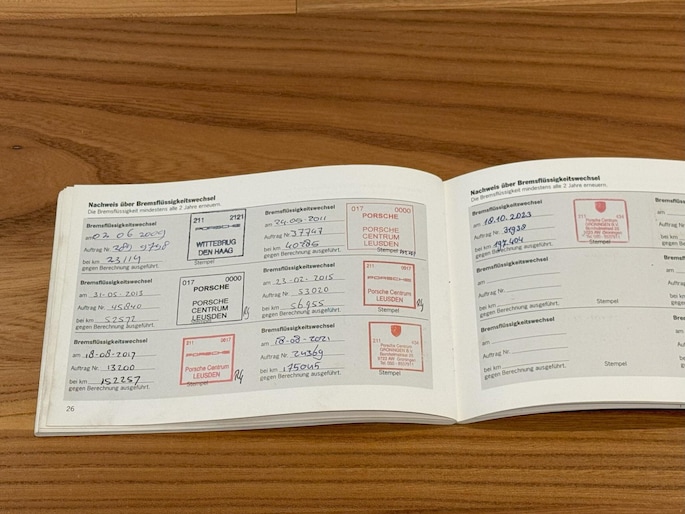 Nachweis über Bremsflüssigkeitswechsel
Die Bremsflüssigkeit mindestens alle 2 Jahre erneuern.
Bremsflüssigkeitswechsel
am 02.06.2009
Auftrag Nr.
bei km 23114
gegen Berechnung ausgeführt.
211 2121
PORSCHE
WITTEBRUG
DEN HAAG
Stempel
Bremsflüssigkeitswechsel
am 24.05.2011
Auftrag Nr. 37747
bei km 40786
gegen Berechnung ausgeführt.
017 0000
PORSCHE
PORSCHE
CENTRUM
LEUSDEN
Stempel
Bremsflüssigkeitswechsel
am 21-05-2013
Auftrag Nr. 45840
bei km 52572
gegen Berechnung ausgeführt.
017 0000
PORSCHE
PORSCHE
CENTRUM
LEUSDEN
Stempel
Bremsflüssigkeitswechsel
am 23-02-2015
Auftrag Nr. 53020
bei km 56955
gegen Berechnung ausgeführt.
211 0817
PORSCHE
Porsche Centrum
LEUSDEN
Stempel
Bremsflüssigkeitswechsel
am 18-08-2017
Auftrag Nr. 13200
bei km 152257
gegen Berechnung ausgeführt.
211 0817
PORSCHE
Porsche Centrum
LEUSDEN
Stempel
Bremsflüssigkeitswechsel
am 18-08-2021
Auftrag Nr. 24369
bei km 175045
gegen Berechnung ausgeführt.
211 434
Porsche Centrum
GRONINGEN B.V.
Stempel
26
Nachweis über Bremsflüssigkeitswechsel
Die Bremsflüssigkeit mindestens alle 2 Jahre erneuern.
Bremsflüssigkeitswechsel
am 18.10.2023
Auftrag Nr. 31938
bei km 197.404
gegen Berechnung ausgeführt.
211 434
Porsche Centrum
GRONINGEN B.V.
Stempel
Bremsflüssigkeitswechsel
am
Auftrag Nr.
bei km
gegen Berechnung ausgeführt.
Stempel
Bremsflüssigkeitswechsel
am
Auftrag Nr.
bei km
gegen Berechnung ausgeführt.
Stempel